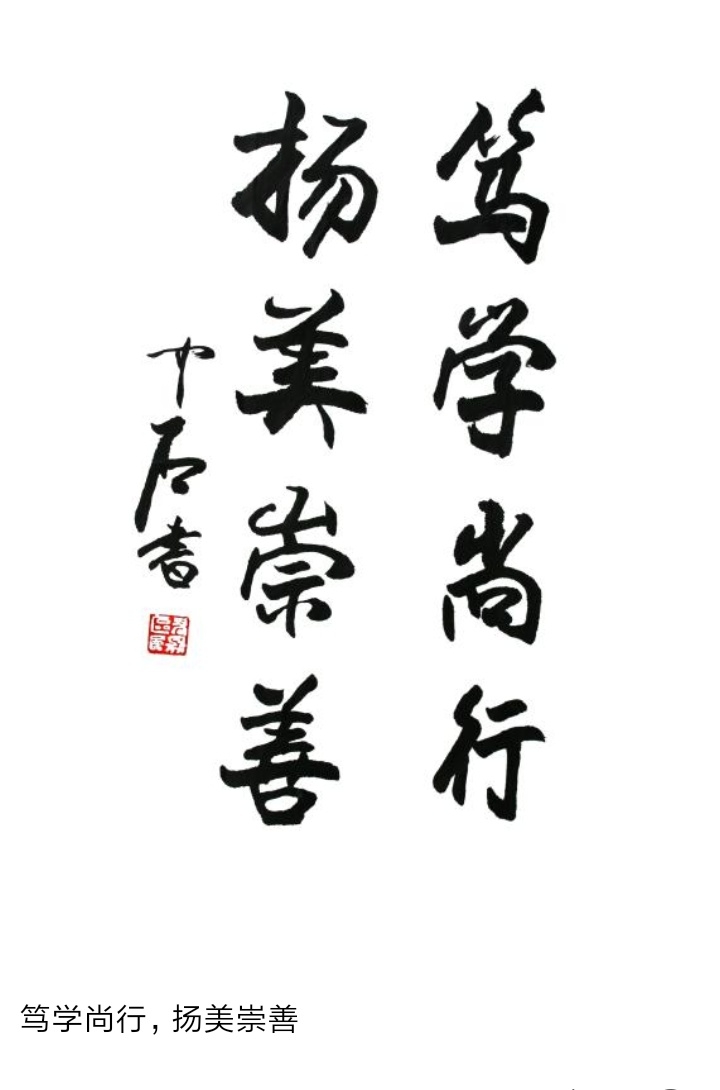 笃学尚行
扬美崇善
中石书
笃学尚行，扬美崇善